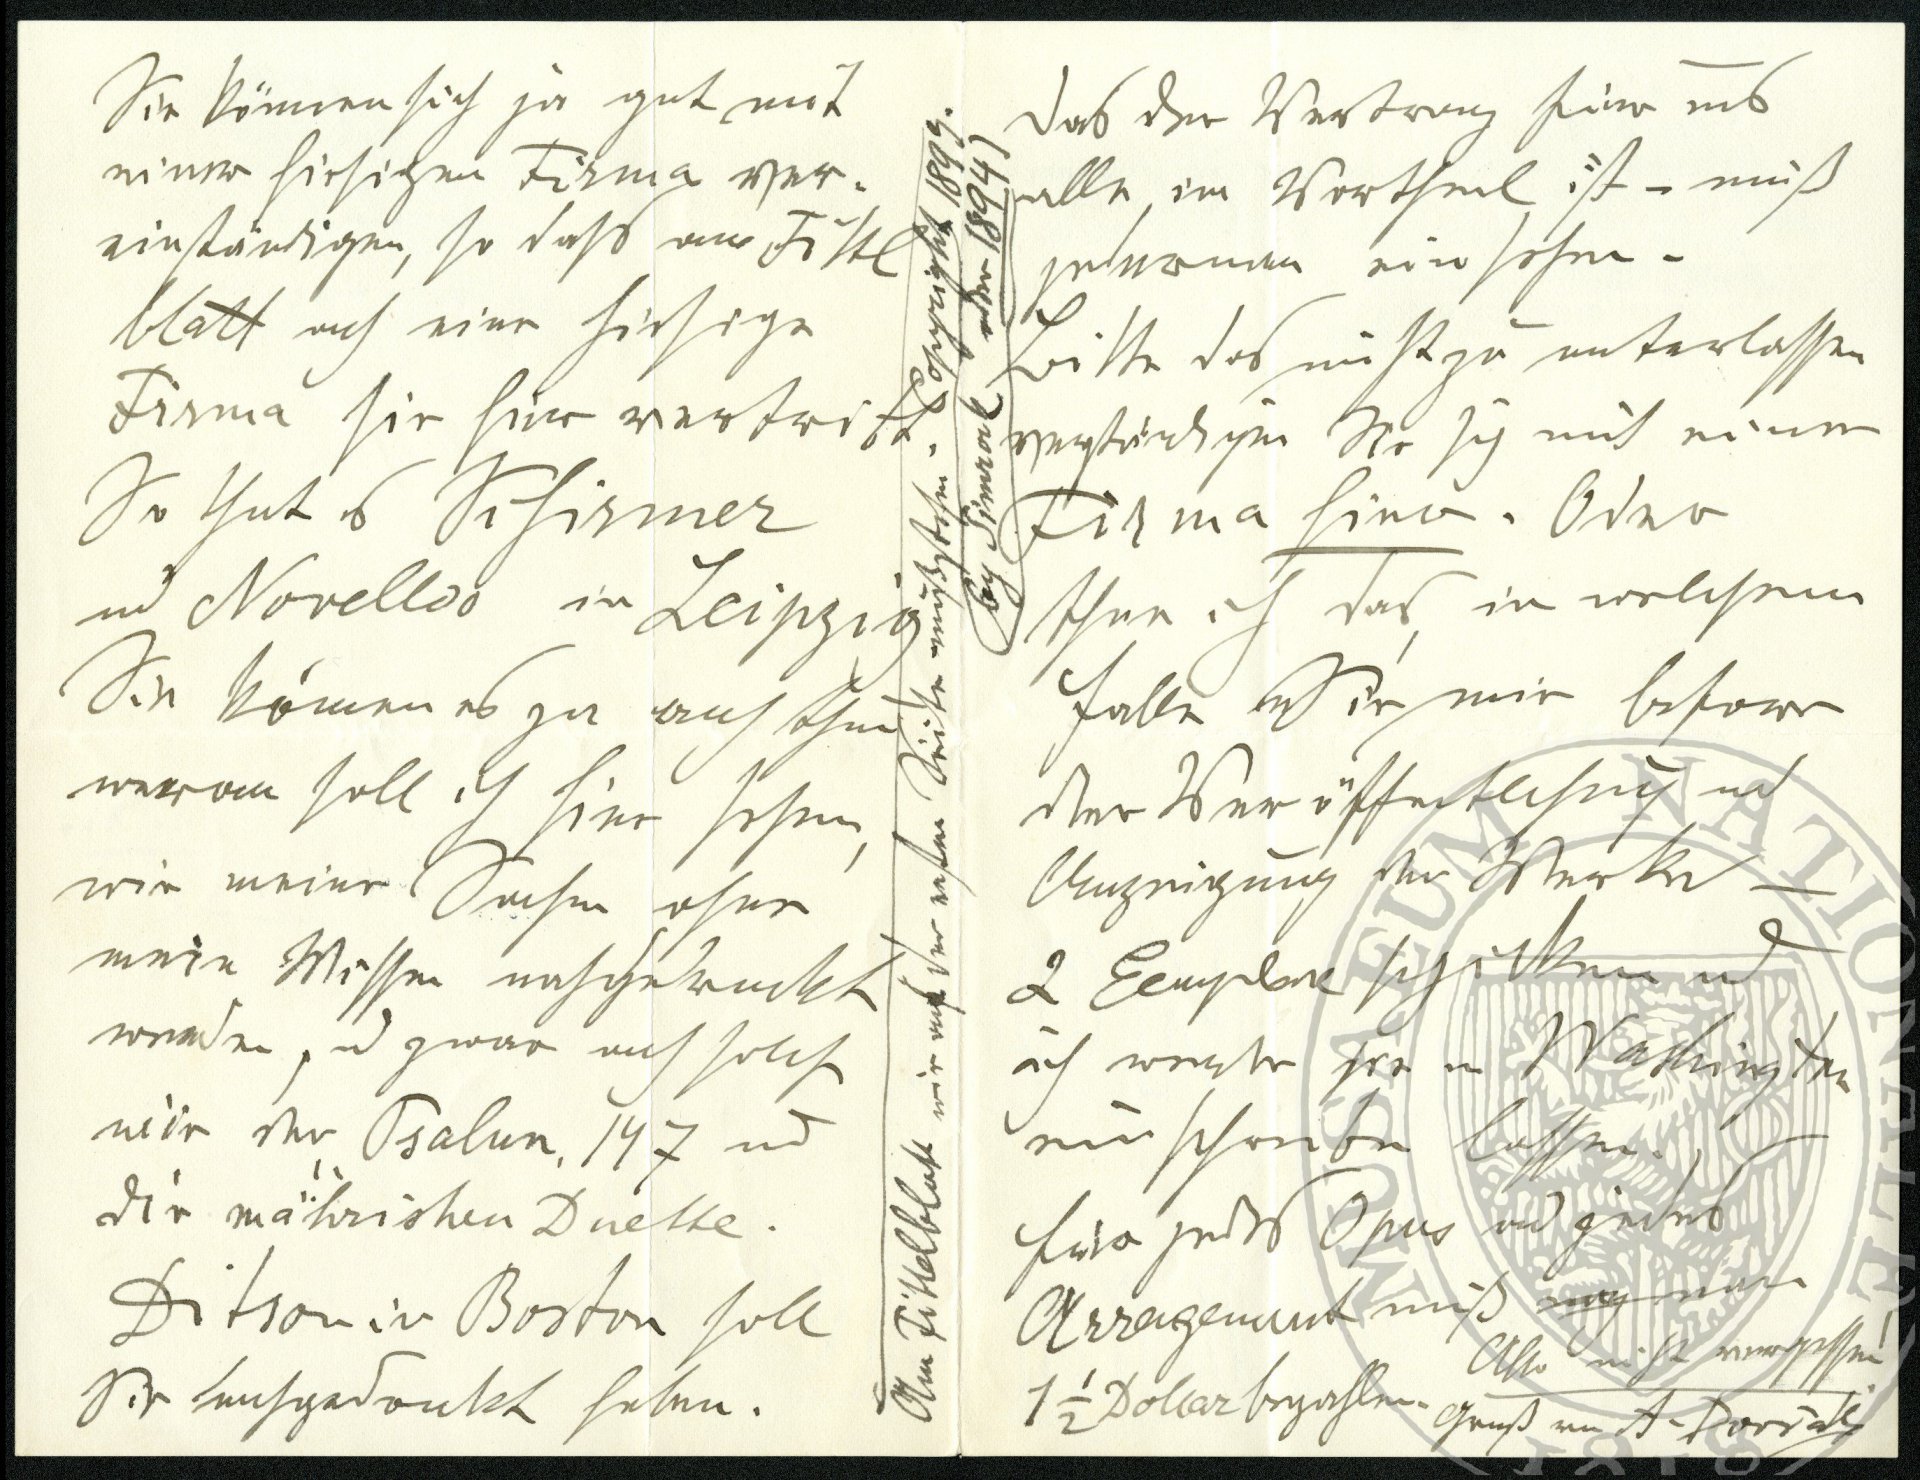 Sie können sich ja gut mit
einer hiesigen Firma ver-
einständigen, so dass am Tittl
blatt auch eine hiesige
Firma sie hier vertritt.
So thut es Schirmer
und Novello in Leipzig
Sie können es ja auch thun
warum soll ich hier sehen,
wie meine Sachen ohne
mein Wissen nachgedruckt
werden, und zwar auch solche
wie der Psalm, 147 und
die mährischen Duette.
Ditson in Boston soll
Sie nachgedruckt haben.
Am Tittelblatt wie auf der ersten Seite muß stehen. Copyright 1893.
by Simrock oder 1894)
das der Vertrag hier uns
alle im Vortheil ist – muß
jederman einsehen –
Bitte das nicht zu unterlassen
verständigen Sie sich mit einer
Firma hier. Oder
thue ich das, in welchem
Falle Sie mir bevor
der Veröffentlichung und
Anzeigung der Werke –
2 Exemplare schicken und
ich werde sie in Washington
einschreiben lassen.
Für jedes Opus und jedes
Arragement muß man
1 1/2 Dollar bezahlen.
Also nicht vergessen!
Gruß von A. Dvořák
MUSAEUM NATIONALE
1818